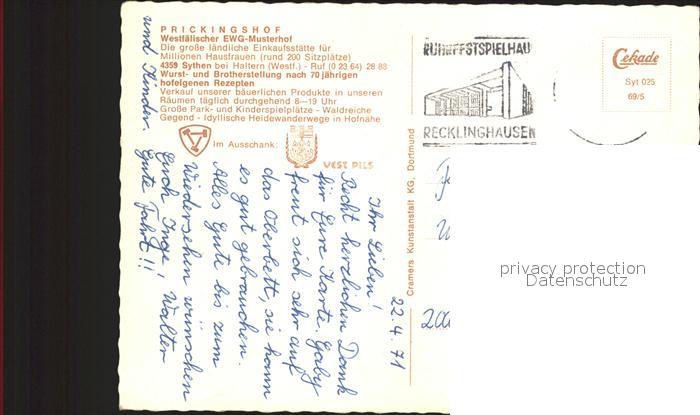 PRICKINGSHOF
Westfälischer EWG-Musterhof
Die große ländliche Einkaufsstätte für
Millionen Hausfrauen (rund 200 Sitzplätze)
4359 Sythen bei Haltern (Westf.) - Ruf (0 23 64) 28 88
Wurst- und Brotherstellung nach 70jährigen
hofeigenen Rezepten
Verkauf unserer bäuerlichen Produkte in unseren
Räumen täglich durchgehend 8—19 Uhr
Große Park- und Kinderspielplätze - Waldreiche
Gegend - Idyllische Heidewanderwege in Hofnähe
Im Ausschank:
VEST PILS
RUHRFESTSPIELHAU
RECKLINGHAUSEN
Cekade
Syt 025
69/5
Cramers Kunstanstalt KG. Dortmund
22.4.71
Ihr Lieben!
Recht herzlichen Dank
für Eure Karte. Gaby
freut sich sehr auf
das Oberbett, sie kann
es gut gebrauchen.
Alles Gute bis zum
Wiedersehen wünschen
Euch Inge, Walter
und Kinder.
Gute Fahrt!!
200
privacy protection
Datenschutz